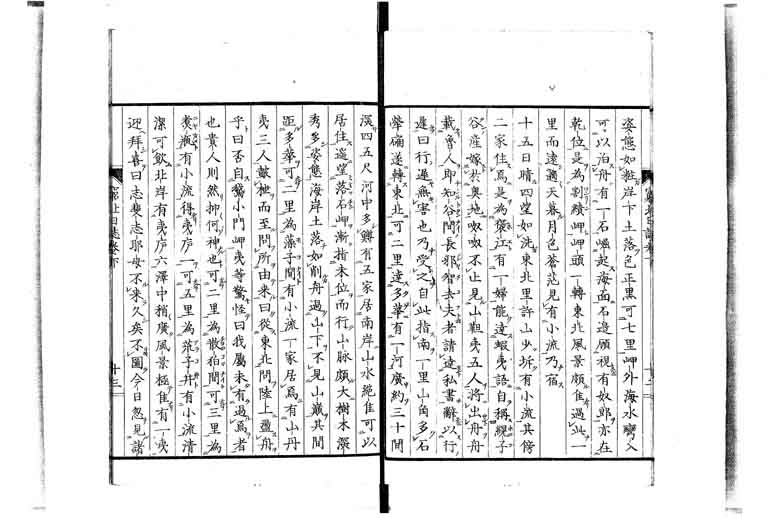 姿態如粧岸下土落色正黒可七里岬外海水彎入
可以泊舟有一石崛起海面石邊顧視有奴郎亦在
乾位是為割殯岬岬頭一轉東北風景頗佳過此一
里而遠適天暮月色蒼茫見有小流乃宿
十五日晴四望如洗東北里許山少坼有小流其傍
二家住為是為 江有一婦能達蝦夷語自稱 子
谷産嫁於奥地呶呶不止見山靼夷五人將出舟舟
載魯人即知谷間長邪智去夫者請遠私書辭以行
遲曰行遲無害也乃受之自此指南一里山角多石
弊 遂轉東北可二里達多華有一河廣約三十間
深四五尺河中多鱒有五家居南岸山水絶佳可以
居住遥望落石岬漸指未位而行山脉頗大樹木深
秀多姿態海岸土落如削舟過山下不見山巓其間
距多華可二里為藻子間有小流一家居焉有山丹
夷三人敵 而至問所由来曰從東北問陸上盪舟
乎曰否自鵞小門岬夷等驚怪曰我屬未有過焉者
也貴人則然抑何神也可二里為散狛間可三里為
煑瓶有小流得夷庐一可五里為筑子井有小流清
潔可飲北岸有夷庐六澤中稍廣風景極佳有一夷
迎拜喜曰志斐志耶毋不来久矣不圖今日忽見諸
窮北日志巻下
十三